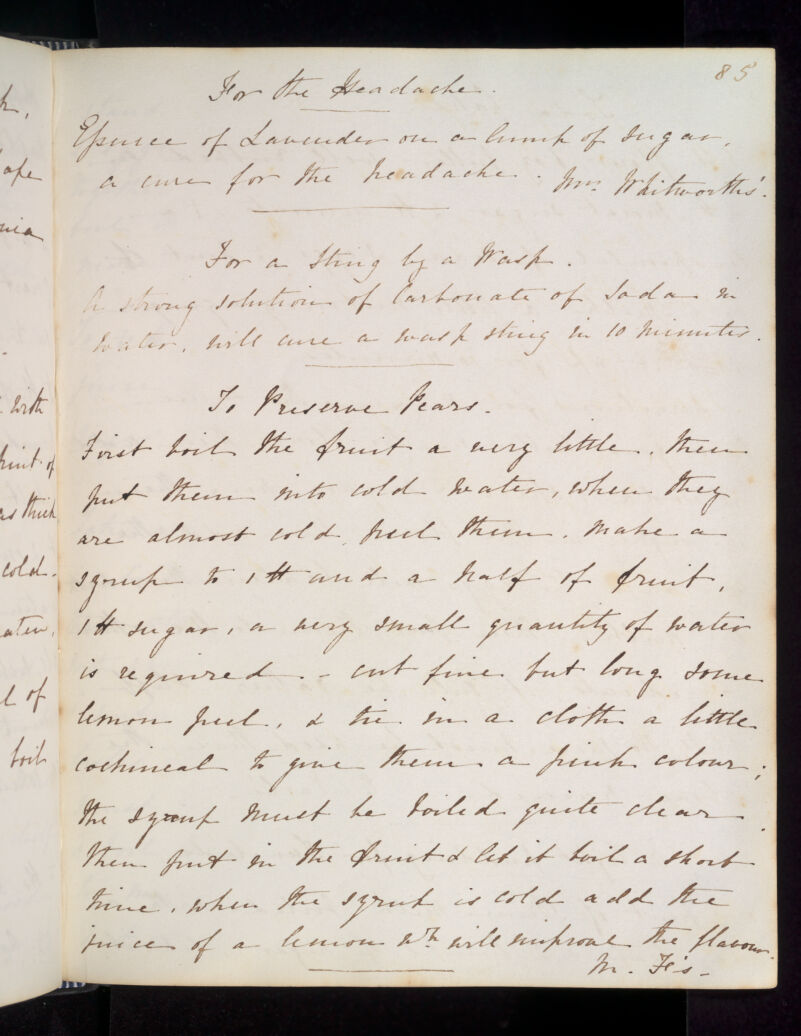 85
For the Headache.
Essence of Lavender on a lump of sugar,
a cure for the headache. Mrs. Whitworth's.
For a Sting by a Wasp.
A strong solution of Carbonate of Soda in
water, will cure a wasp sting in 10 minutes.
To Preserve Pears.
First boil the fruit a very little, then
put them into cold water, when they
are almost cold peel them. make a
syrup to 1 ℔ and a half of fruit,
1 ℔ sugar, a very small quantity of water
is required - cut fine but long some
lemon peel, & tie in a cloth a little
cochineal to give them a pink colour;
the syrup must be boiled quite clear
then put in the fruit & let it boil a short
time, when the syrup is cold add the
juice of a lemon wh. will improve the flavour.
M. F's -
ape
nia
with
pint of
as thick
cold.
ater,
l of
boil